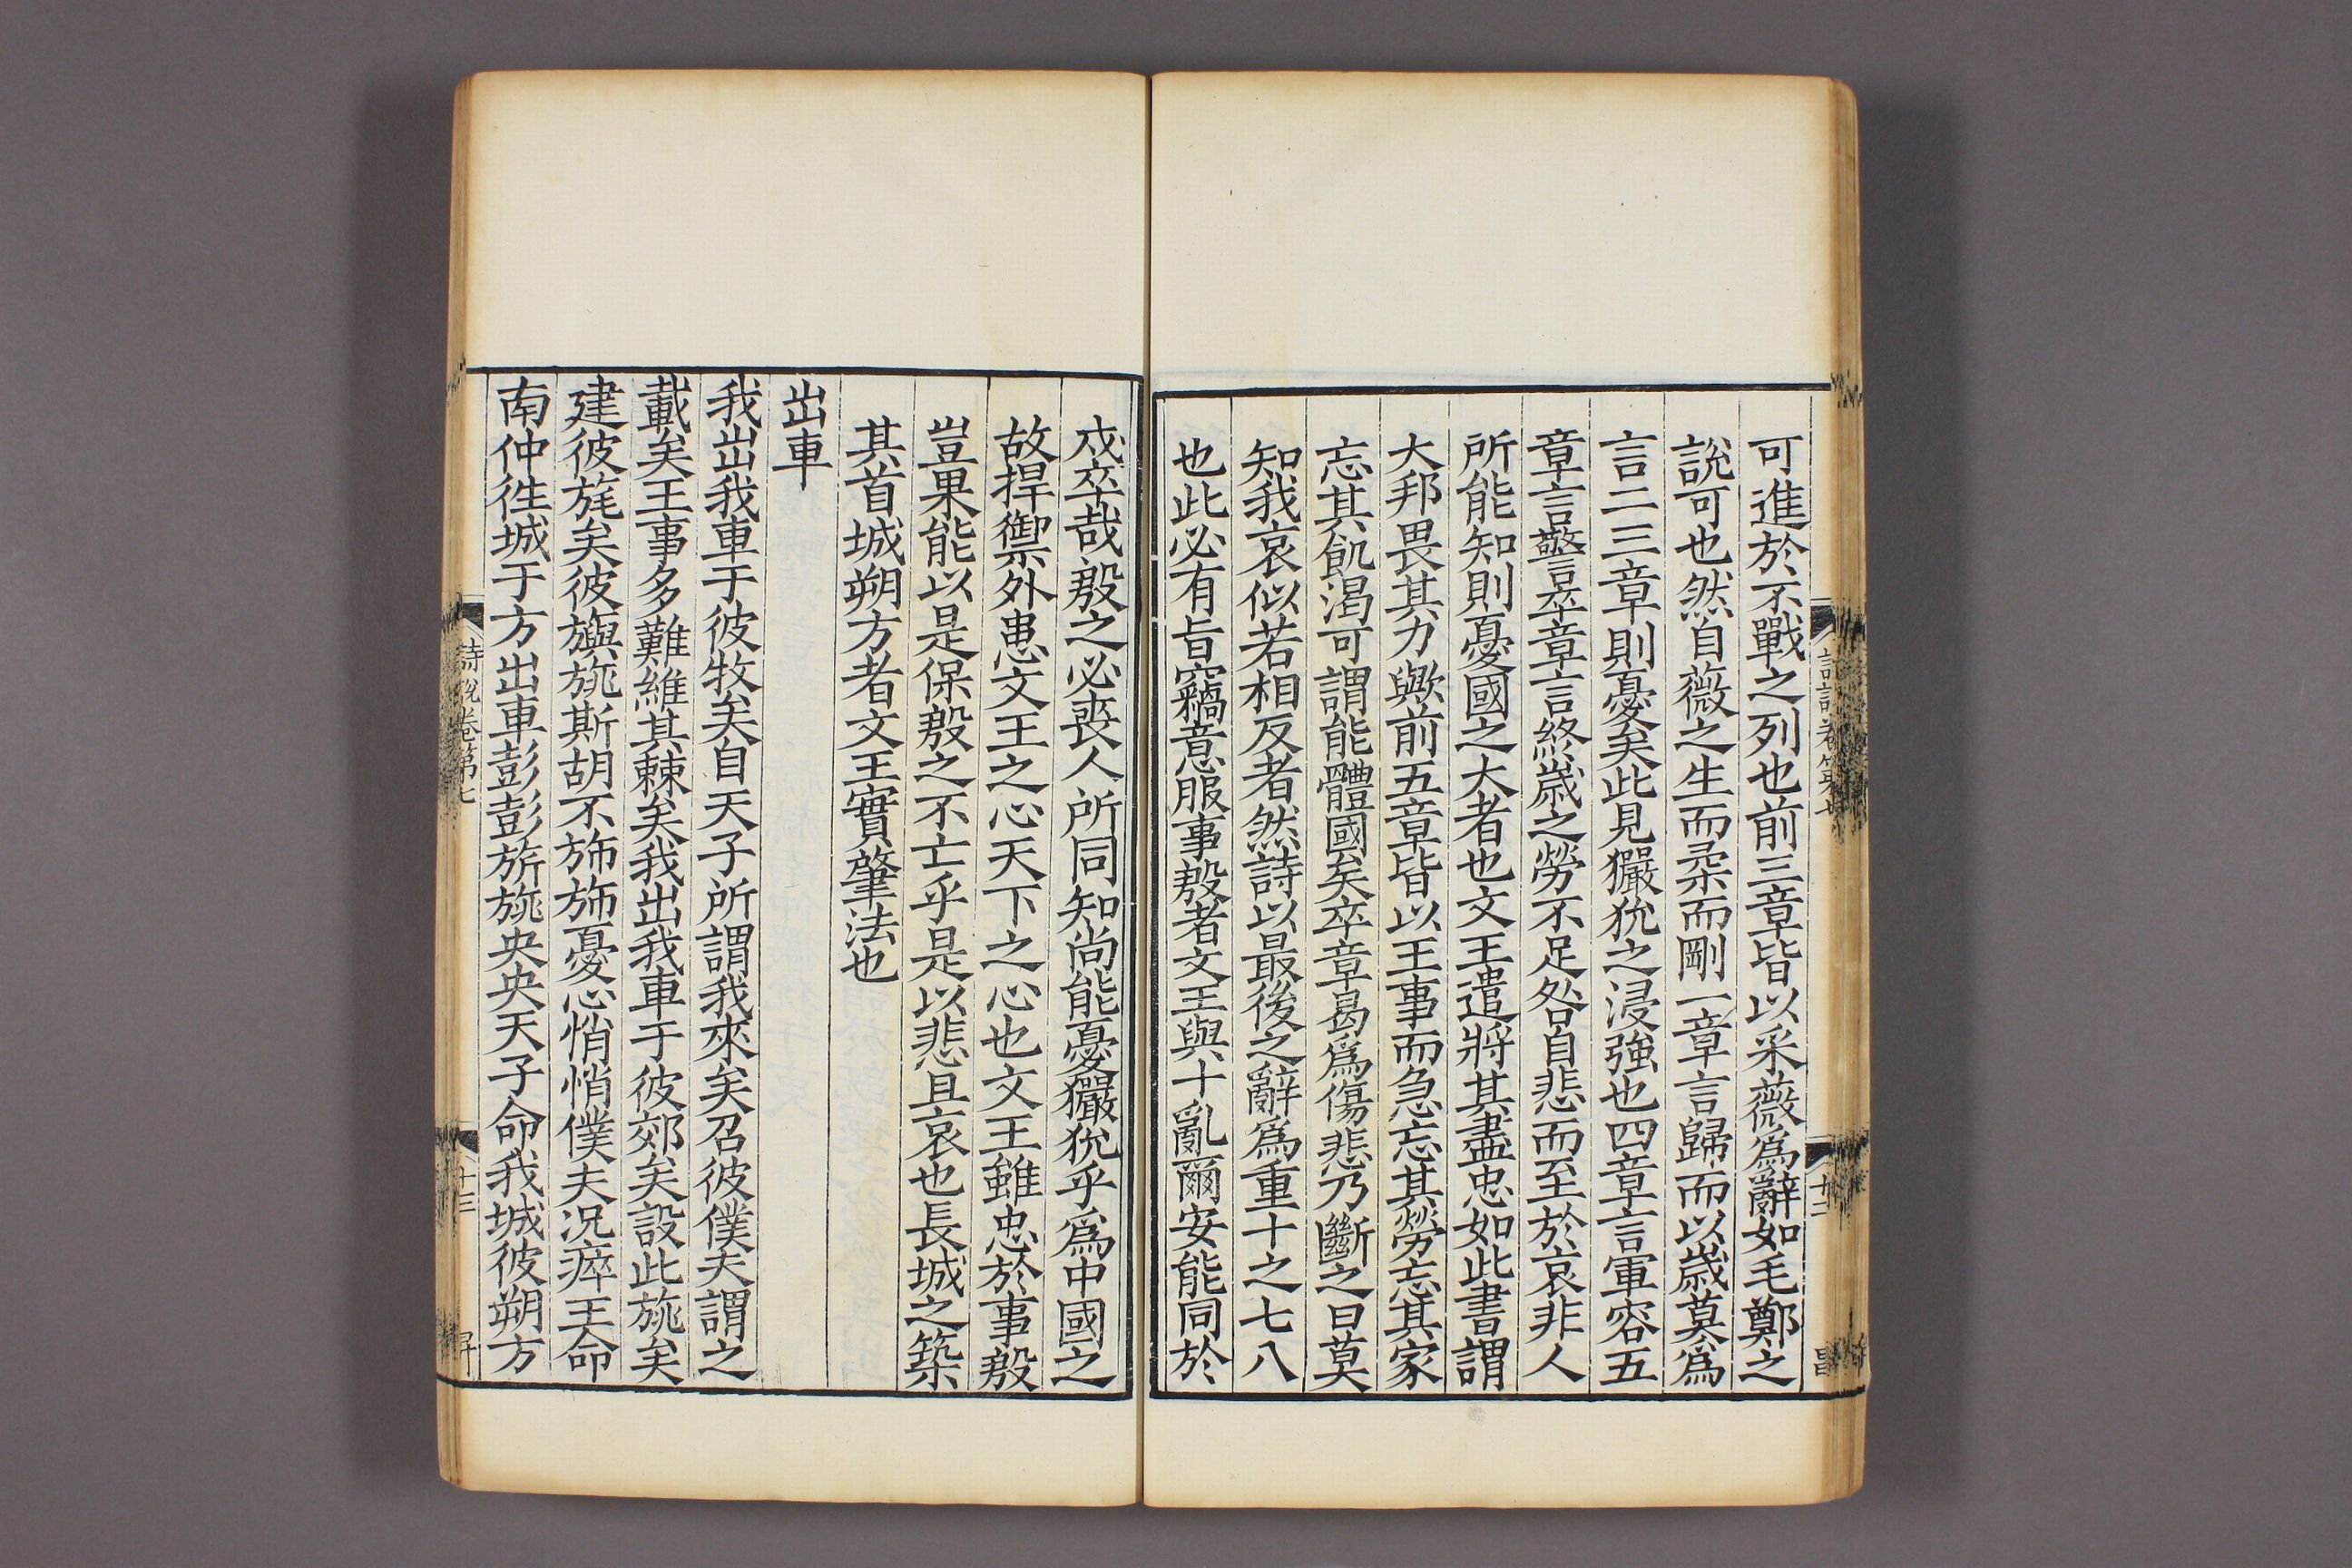 可進於不戰之列也前三章皆以采薇爲辭如毛鄭之
說可也然自薇之生而柔而剛一章言歸而以歲莫爲
言二三章則憂矣此見玁狁之浸強也四章言軍容五
章言警卒章言終歲之勞不足咎自悲而至於哀非人
所能知則憂國之大者也文王遣將其盡忠如此書謂
大邦畏其力歟前五章皆以王事而急忘其勞忘其家
忘其飢渴可謂能體國矣卒章曷爲傷悲乃斷之曰莫
知我哀似若相反者然詩以最後之辭爲重十之七八
也此必有旨竊意服事殷者文王與十亂爾安能同於
戍卒哉殷之必喪人所同知尚能憂玁狁乎爲中國之
故捍禦外患文王之心天下之心也文王雖忠於事殷
豈果能以是保殷之不亡乎是以悲且哀也長城之築
其首城朔方者文王實肇法也
出車
我出我車于彼牧矣自天子所謂我來矣召彼僕夫謂之
載矣王事多難維其棘矣我出我車于彼郊矣設此旐矣
建彼旄矣彼旟旐斯胡不旆旆憂心悄悄僕夫況瘁王命
南仲徃城于方出車彭彭旂旐央央天子命我城彼朔方
詩說卷第七
十三